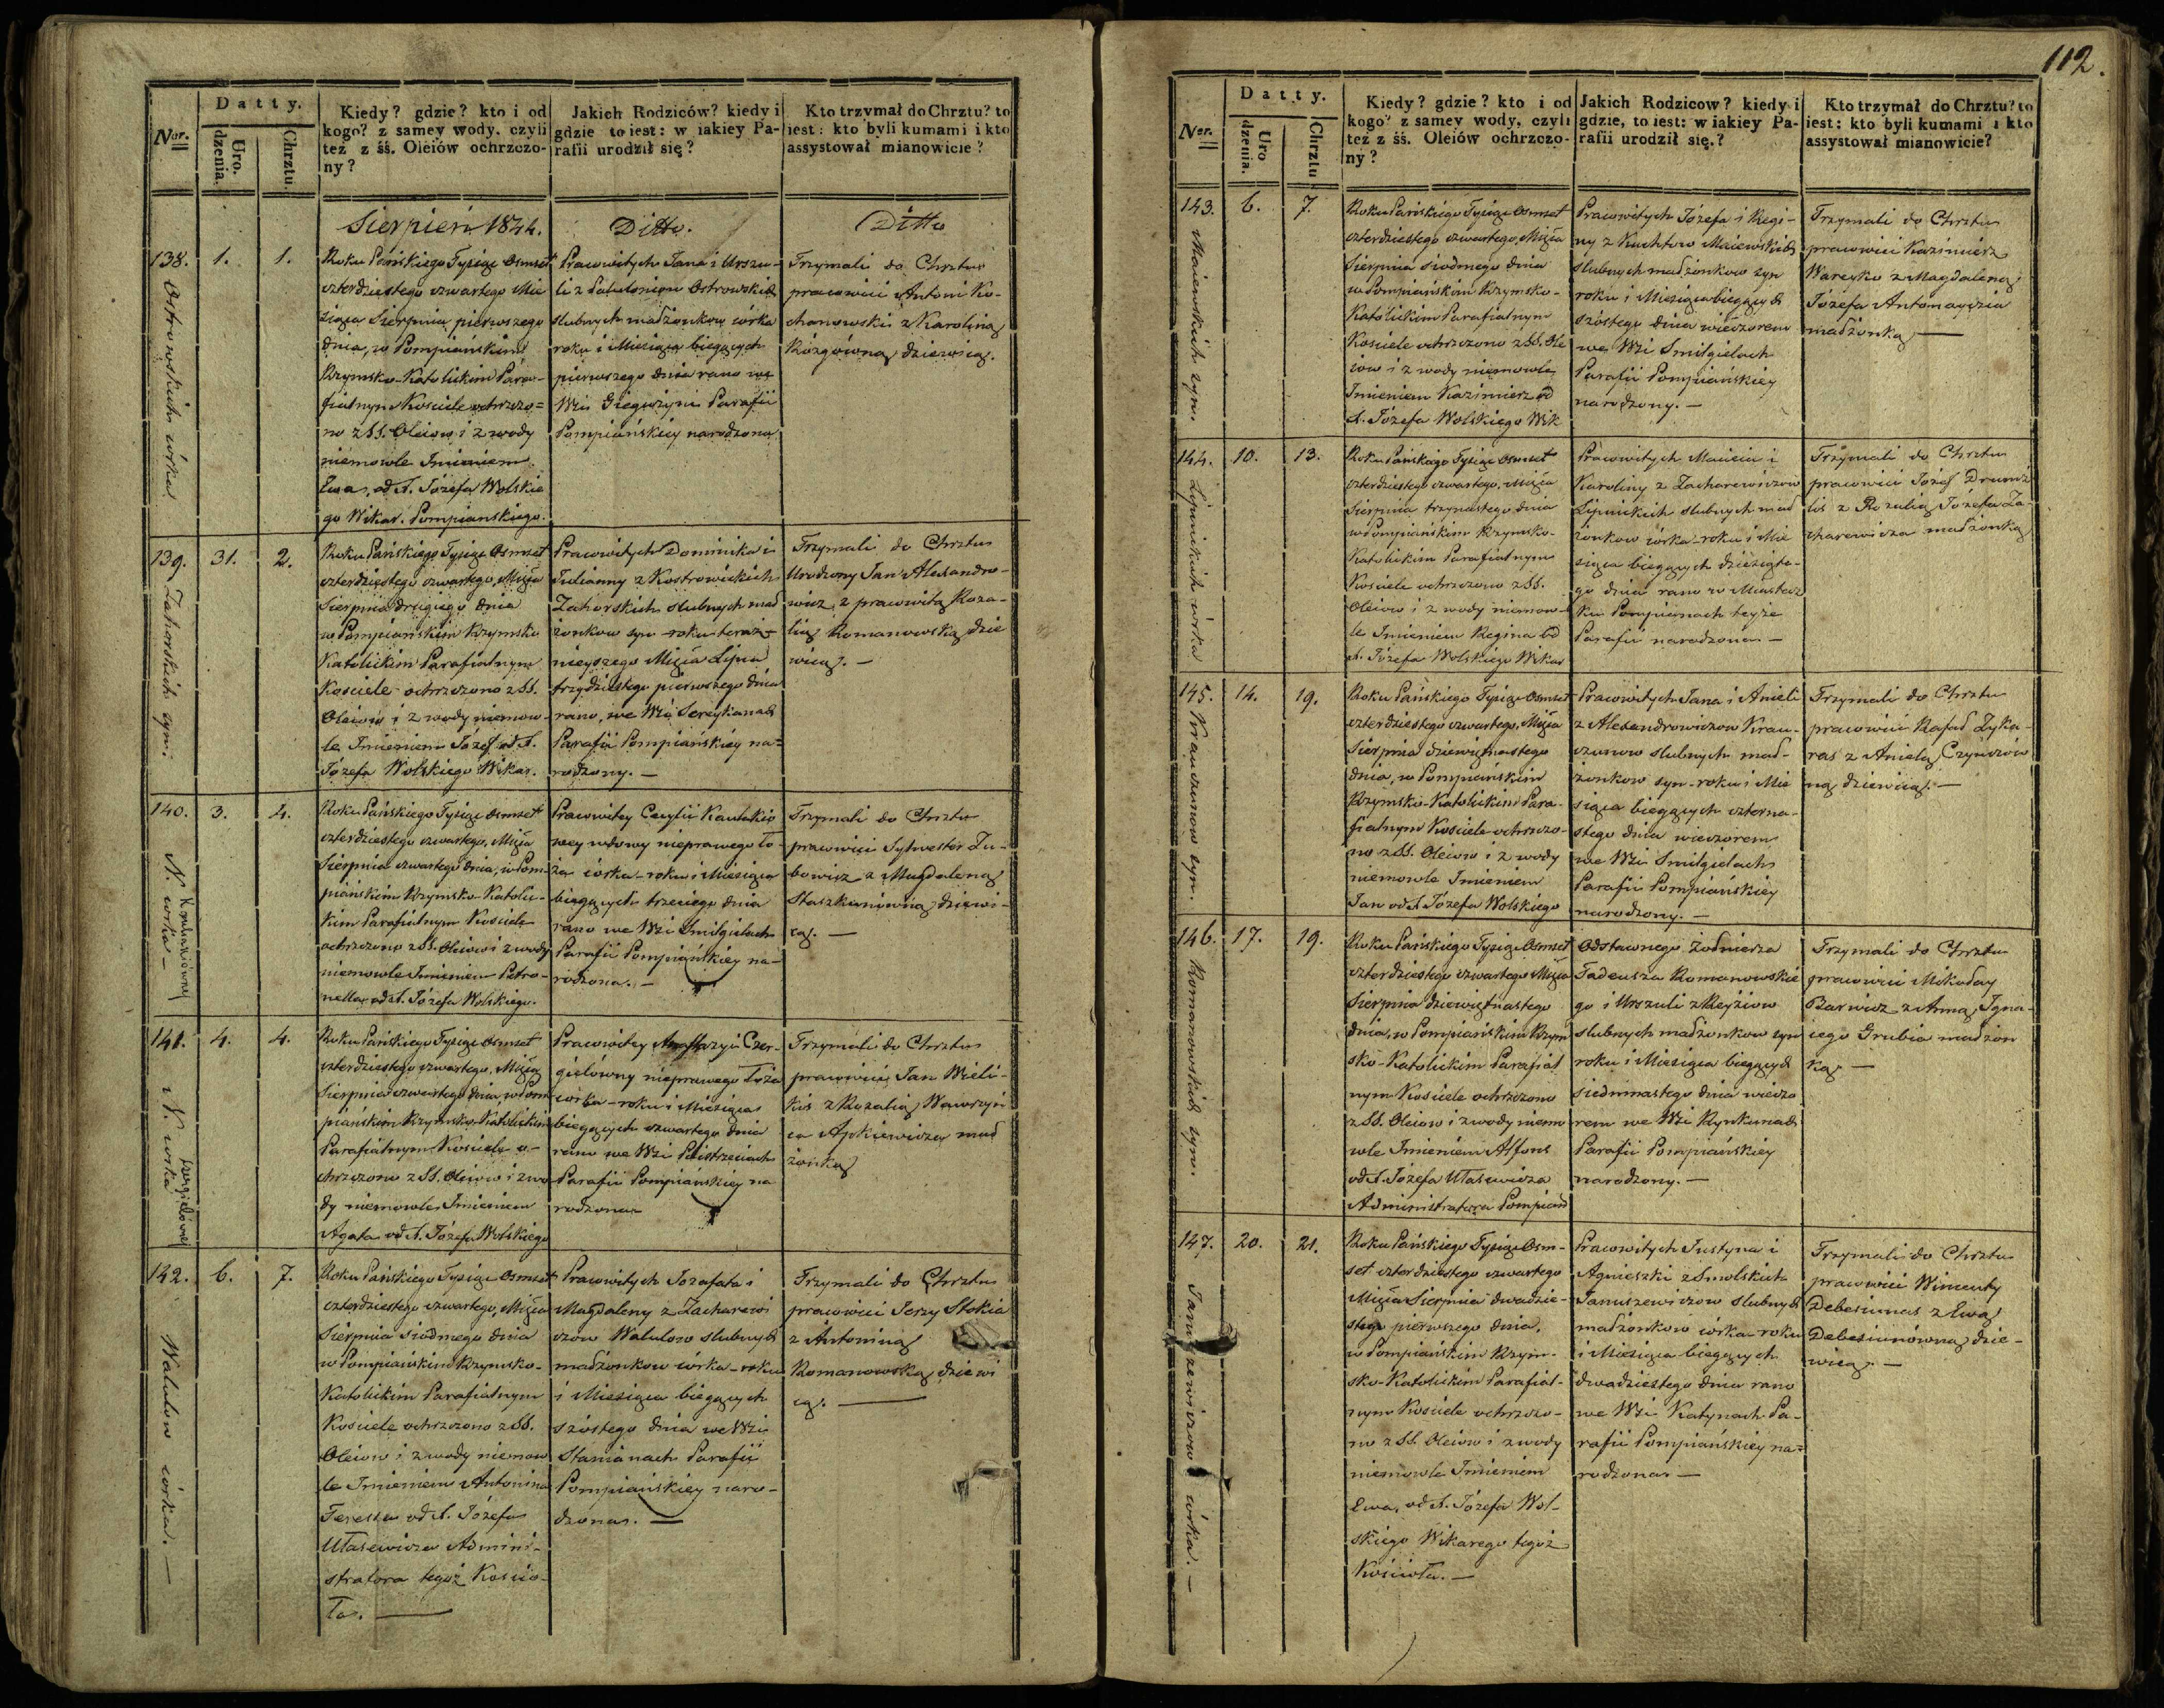 Ner.
Datty.
Uro.
dzenia.
Chrztu.
Kiedy? gdzie? kto i od
kogo? z samey wody, czyli
też z śś. Oleiów ochrzczo-
ny?
Jakich Rodziców? kiedy i
gdzie to iest: w iakiey Pa-
rafii urodził się?
Kto trzymał do Chrztu? to
iest: kto byli kumami i kto
assystował mianowicie?
Sierpień 1844.
Ditto.
Ditto
138.
Ostrowskich córka
1.
1.
Roku Pańskiego Tysiąc Osmset
czterdziestego czwartego Mie
siąca Sierpnia pierwszego
dnia, w Pompiańskim
Rzymsko-Katolickim Para-
fialnym Kosciele ochrzczo=
no z SS. Oleiow i z wody
niemowle Imieniem
Ewa, od X. Józefa Wolskie
go Wikar. Pompianskiego.
Pracowitych Jana i Urszu-
li z Ostrowskich
slubnych małżonkow córka
roku i Miesiąca bieżących
pierwszego dnia rano we
Wsi Gieguzyni Parafii
Pompiańskiey narodzona
Trzymali do Chrztu
pracowici Antoni Ko-
chanowski z Karoliną
Rózgówną dziewicą.
139.
Zahorskich syn.
31.
2.
Roku Pańskiego Tysiąc Osmset
czterdziestego czwartego, Msca
Sierpnia drugiego dnia
w Pompiańskim Rzymsko
Katolickim Parafialnym
Kosciele ochrzczono z SS.
Oleiow i z wody niemow-
le Imieniem Józef od X.
Józefa Wolskiego Wikar.
Pracowitych Dominika i
Julianny z Kostrowickich
Zahorskich slubnych mał
żonkow syn roku teraź-
nieyszego Msca Lipca
trzydziestego pierwszego dnia
rano, we Wsi Sereykanach
Parafii Pompiańskiey na=
rodzony. —
Trzymali do Chrztu
Urodzony Jan Alexandro-
wicz z pracowitą Roza-
lią Romanowską dzie
wicą. —
140.
N. Kaulakiówney
córka —
3.
4.
Roku Pańskiego Tysiąc Osmset
czterdziestego czwartego, Msca
Sierpnia czwartego dnia, w Pom-
piańskim Rzymsko Katolic-
kim Parafialnym Kosciele
ochrzczono z SS. Oleiow i z wody
niemowle Imieniem Petro-
nella od X. Józefa Wolskiego.
Pracowitey Cecylii Kaulakio
wey wdowy nieprawego ło-
ża córka roku i Miesiąca
bieżących trzeciego dnia
rano we Wsi Smilgielach
Parafii Pompiańskiey na-
rodzona. —
Trzymali do Chrztu
pracowici Sylwester Zu-
bowicz z Magdaleną
Staszkunówną dziewi-
cą. —
141.
N. Czergielówney
córka
4.
4.
Roku Pańskiego Tysiąc Osmset
czterdziestego czwartego, Msca
Sierpnia czwartego dnia, w Pom
piańskim Rzymsko Katolickim
Parafialnym Kosciele o-
chrzczono z SS. Oleiow i z wo
dy niemowle Imieniem
Agata od X. Józefa Wolskiego
Pracowitey Anastazyi Czer-
gielówny nieprawego łoża
córka roku i Miesiąca
bieżących czwartego dnia
rano we Wsi Poistrzeciach
Parafii Pompiańskiey na
rodzona
Trzymali do Chrztu
pracowici Jan Wieli-
kis z Rozalią Wawrzyń
ca Ajokiewicza mał
żonką
142.
Walulow córka. —
6.
7.
Roku Pańskiego Tysiąc Osmset
czterdziestego czwartego, Msca
Sierpnia siodmego dnia
w Pompiańskim Rzymsko-
Katolickim Parafialnym
Kosciele ochrzczono z SS.
Oleiow i z wody niemow
le Imieniem Antonina
Teressa od X. Józefa
Utasewicza Admini-
stratora tegoż Koscio-
ła. —
Pracowitych Jozafata i
Magdaleny z Zacharewi
czow Walulow slubnych
małżonkow córka roku
i Miesiąca bieżących
szóstego dnia we Wsi
Stanianach Parafii
Pompiańskiey naro-
dzona. —
Trzymali do Chrztu
pracowici Jerzy Stokia
z Antoniną
Romanowską dziewi
cą. —
112.
Ner.
Datty.
Uro
dzenia.
Chrztu
Kiedy? gdzie? kto i od
kogo? z samey wody, czyli
też z śś. Oleiów ochrzczo-
ny?
Jakich Rodzicow? kiedy i
gdzie, to iest: w iakiey Pa-
rafii urodził się.?
Kto trzymał do Chrztu? to
iest: kto byli kumami i kto
assystował mianowicie?
143.
Maiewskich syn.
6.
7.
Roku Pańskiego Tysiąc Osmset
czterdziestego czwartego, Msca
Sierpnia siodmego dnia
w Pompiańskim Rzymsko-
Katolickim Parafialnym
Kosciele ochrzczono z SS. Ole
iow i z wody niemowle
Imieniem Kazimierz od
X. Józefa Wolskiego Wik
Pracowitych Józefa i Regi-
ny z Kuchtow Maiewskich
slubnych małżonkow syn
roku i Miesiąca bieżących
szóstego dnia wieczorem
we Wsi Smilgielach
Parafii Pompiańskiey
narodzony. —
Trzymali do Chrztu
pracowici Kazimierz
Wareyko z Magdaleną
Józefa Antomayzia
małżonką —
144.
Lipnickich córka
10.
13.
Roku Pańskiego Tysiąc Osmset
czterdziestego czwartego, Msca
Sierpnia trzynastego dnia
w Pompiańskim Rzymsko-
Katolickim Parafialnym
Kosciele ochrzczono z SS.
Oleiow i z wody niemow-
le Imieniem Regina od
X. Józefa Wolskiego Wikar
Pracowitych Macieia i
Karoliny z Zacharewiczow
Lipnickich slubnych mał
żonkow córka roku i Mie
siąca bieżących dziesiąte-
go dnia rano w Miastecz
ku Pompianach teyże
Parafii narodzona —
Trzymali do Chrztu
pracowici Józef Drumź
lis z Rozalią Józefa Za-
charewicza małżonką
145.
Krauczunow syn.
14.
19.
Roku Pańskiego Tysiąc Osmset
czterdziestego czwartego, Msca
Sierpnia dziewiętnastego
dnia, w Pompiańskim
Rzymsko-Katolickim Para-
fialnym Kosciele ochrzczo-
no z SS. Oleiow i z wody
niemowle Imieniem
Jan od X Józefa Wolskiego
Pracowitych Jana i Anieli
z Alexandrowiczow Krau-
czunow slubnych mał-
żonkow syn roku i Mie
siąca bieżących czterna-
stego dnia wieczorem
we Wsi Smilgielach
Parafii Pompiańskiey
narodzony. —
Trzymali do Chrztu
pracowici Rafał Zyka-
ras z Anielą Czyuczow
ną dziewicą. —
146.
Romanowskich syn.
17.
19.
Roku Pańskiego Tysiąc Osmset
czterdziestego czwartego Msca
Sierpnia dziewiętnastego
dnia, w Pompiańskim Rzym
sko-Katolickim Parafial
nym Kosciele ochrzczono
z SS. Oleiow i z wody niemo
wle Imieniem Alfons
od X. Józefa Utasewicza
Administratora Pompian
Odstawnego żołnierza
Tadeusza Romanowskie
go i Urszuli z Reyziow
slubnych małżonkow syn
roku i Miesiąca bieżących
siedmnastego dnia wieczo
rem we Wsi Rynkunach
Parafii Pompiańskiey
narodzony. —
Trzymali do Chrztu
pracowici Mikołay
Barwicz z Anną Igna-
cego Grubia małżon
ką —
147.
Januszewiczow córka. —
20.
21.
Roku Pańskiego Tysiąc Osm-
set czterdziestego czwartego
Msca Sierpnia dwudzie-
stego pierwszego dnia,
w Pompiańskim Rzym-
sko-Katolickim Parafial-
nym Kosciele ochrzczo-
no z SS. Oleiow i z wody
niemowle Imieniem
Ewa, od X. Józefa Wol-
skiego Wikarego tegoż
Kościoła. —
Pracowitych Justyna i
Agnieszki z Smolskich
Januszewiczow slubnych
małżonkow córka roku
i Miesiąca bieżących
dwudziestego dnia rano
we Wsi Katynach Pa-
rafii Pompiańskiey na=
rodzona —
Trzymali do Chrztu
pracowici Wincenty
Debesiunas z Ewą
Debesiunówną dzie-
wicą. —